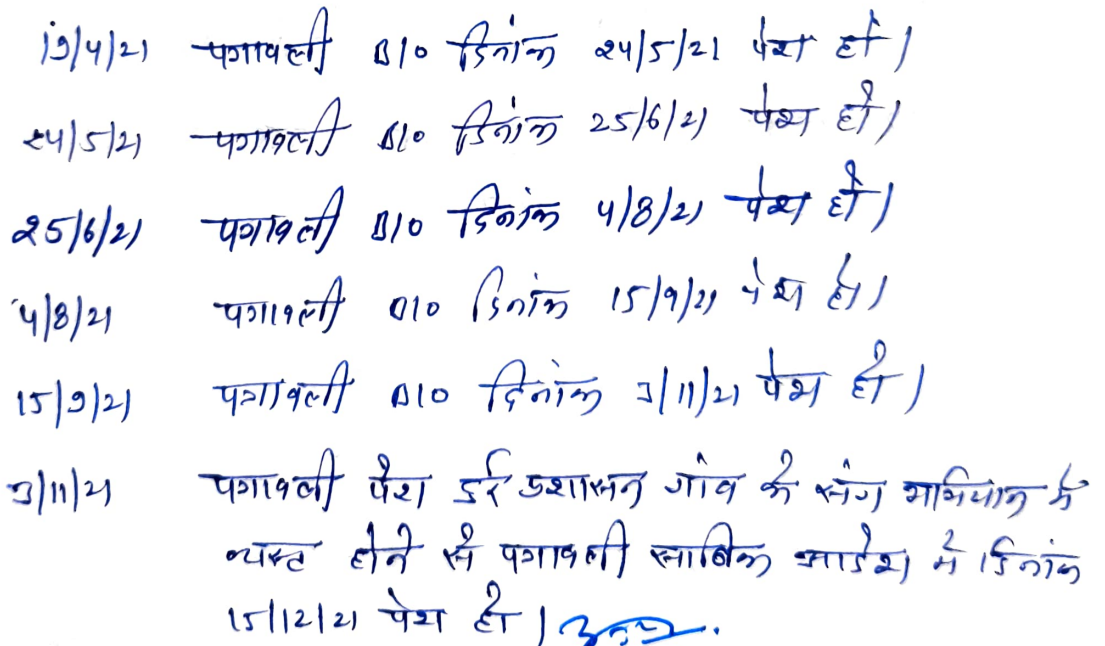 19/4/21 पत्रावली B/O दिनांक 24/5/21 पेश हो।
24/5/21 पत्रावली B/O दिनांक 25/6/21 पेश हो।
25/6/21 पत्रावली B/O दिनांक 4/8/21 पेश हो।
4/8/21 पत्रावली B/O दिनांक 15/9/21 पेश हो।
15/9/21 पत्रावली B/O दिनांक 3/11/21 पेश हो।
3/11/21 पत्रावली पेश हुई प्रशासन गांव के संग अभियान में
व्यस्त होने से पत्रावली साबिक आदेश में दिनांक
15/12/21 पेश हो।